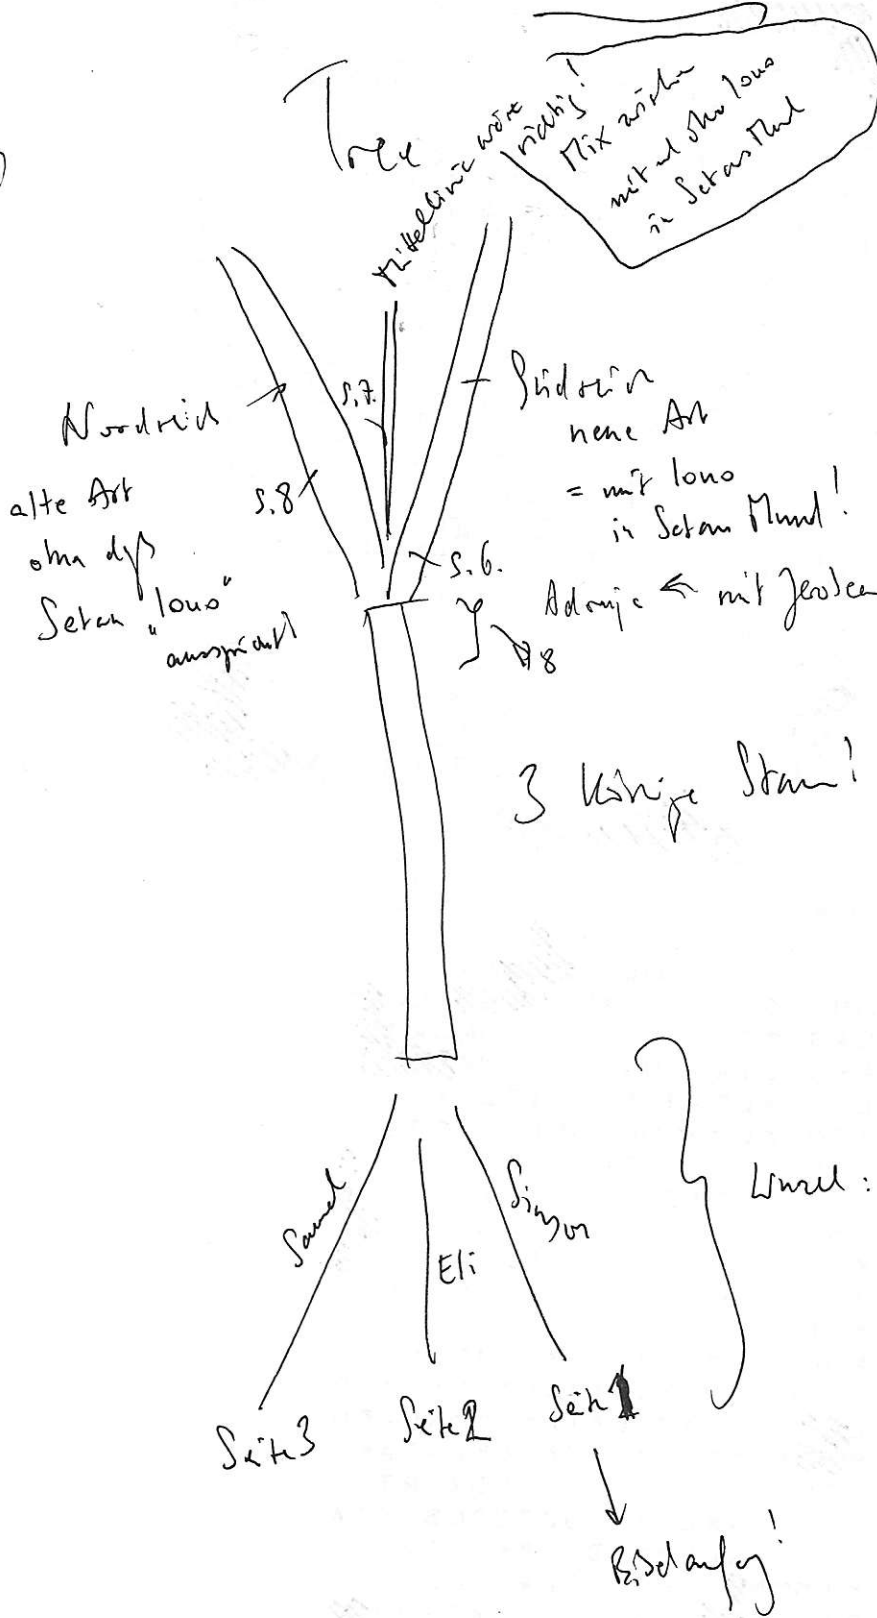 Tree
Mittellinie wäre
richtig!
Mix zwischen
mit und ohne lono
in Setans Mund
Nordreich
alte Art
ohne daß
Setan "lono"
ausspricht
S.8
S.7.
Südreich
neue Art
= mit lono
in Setans Mund!
S.6.
Adonija ← mit
8
3 Könige Stamm!
Samuel
Eli
Simson
Wurzel:
Seite 3
Seite 2
Seite 1
Bibelanfang!